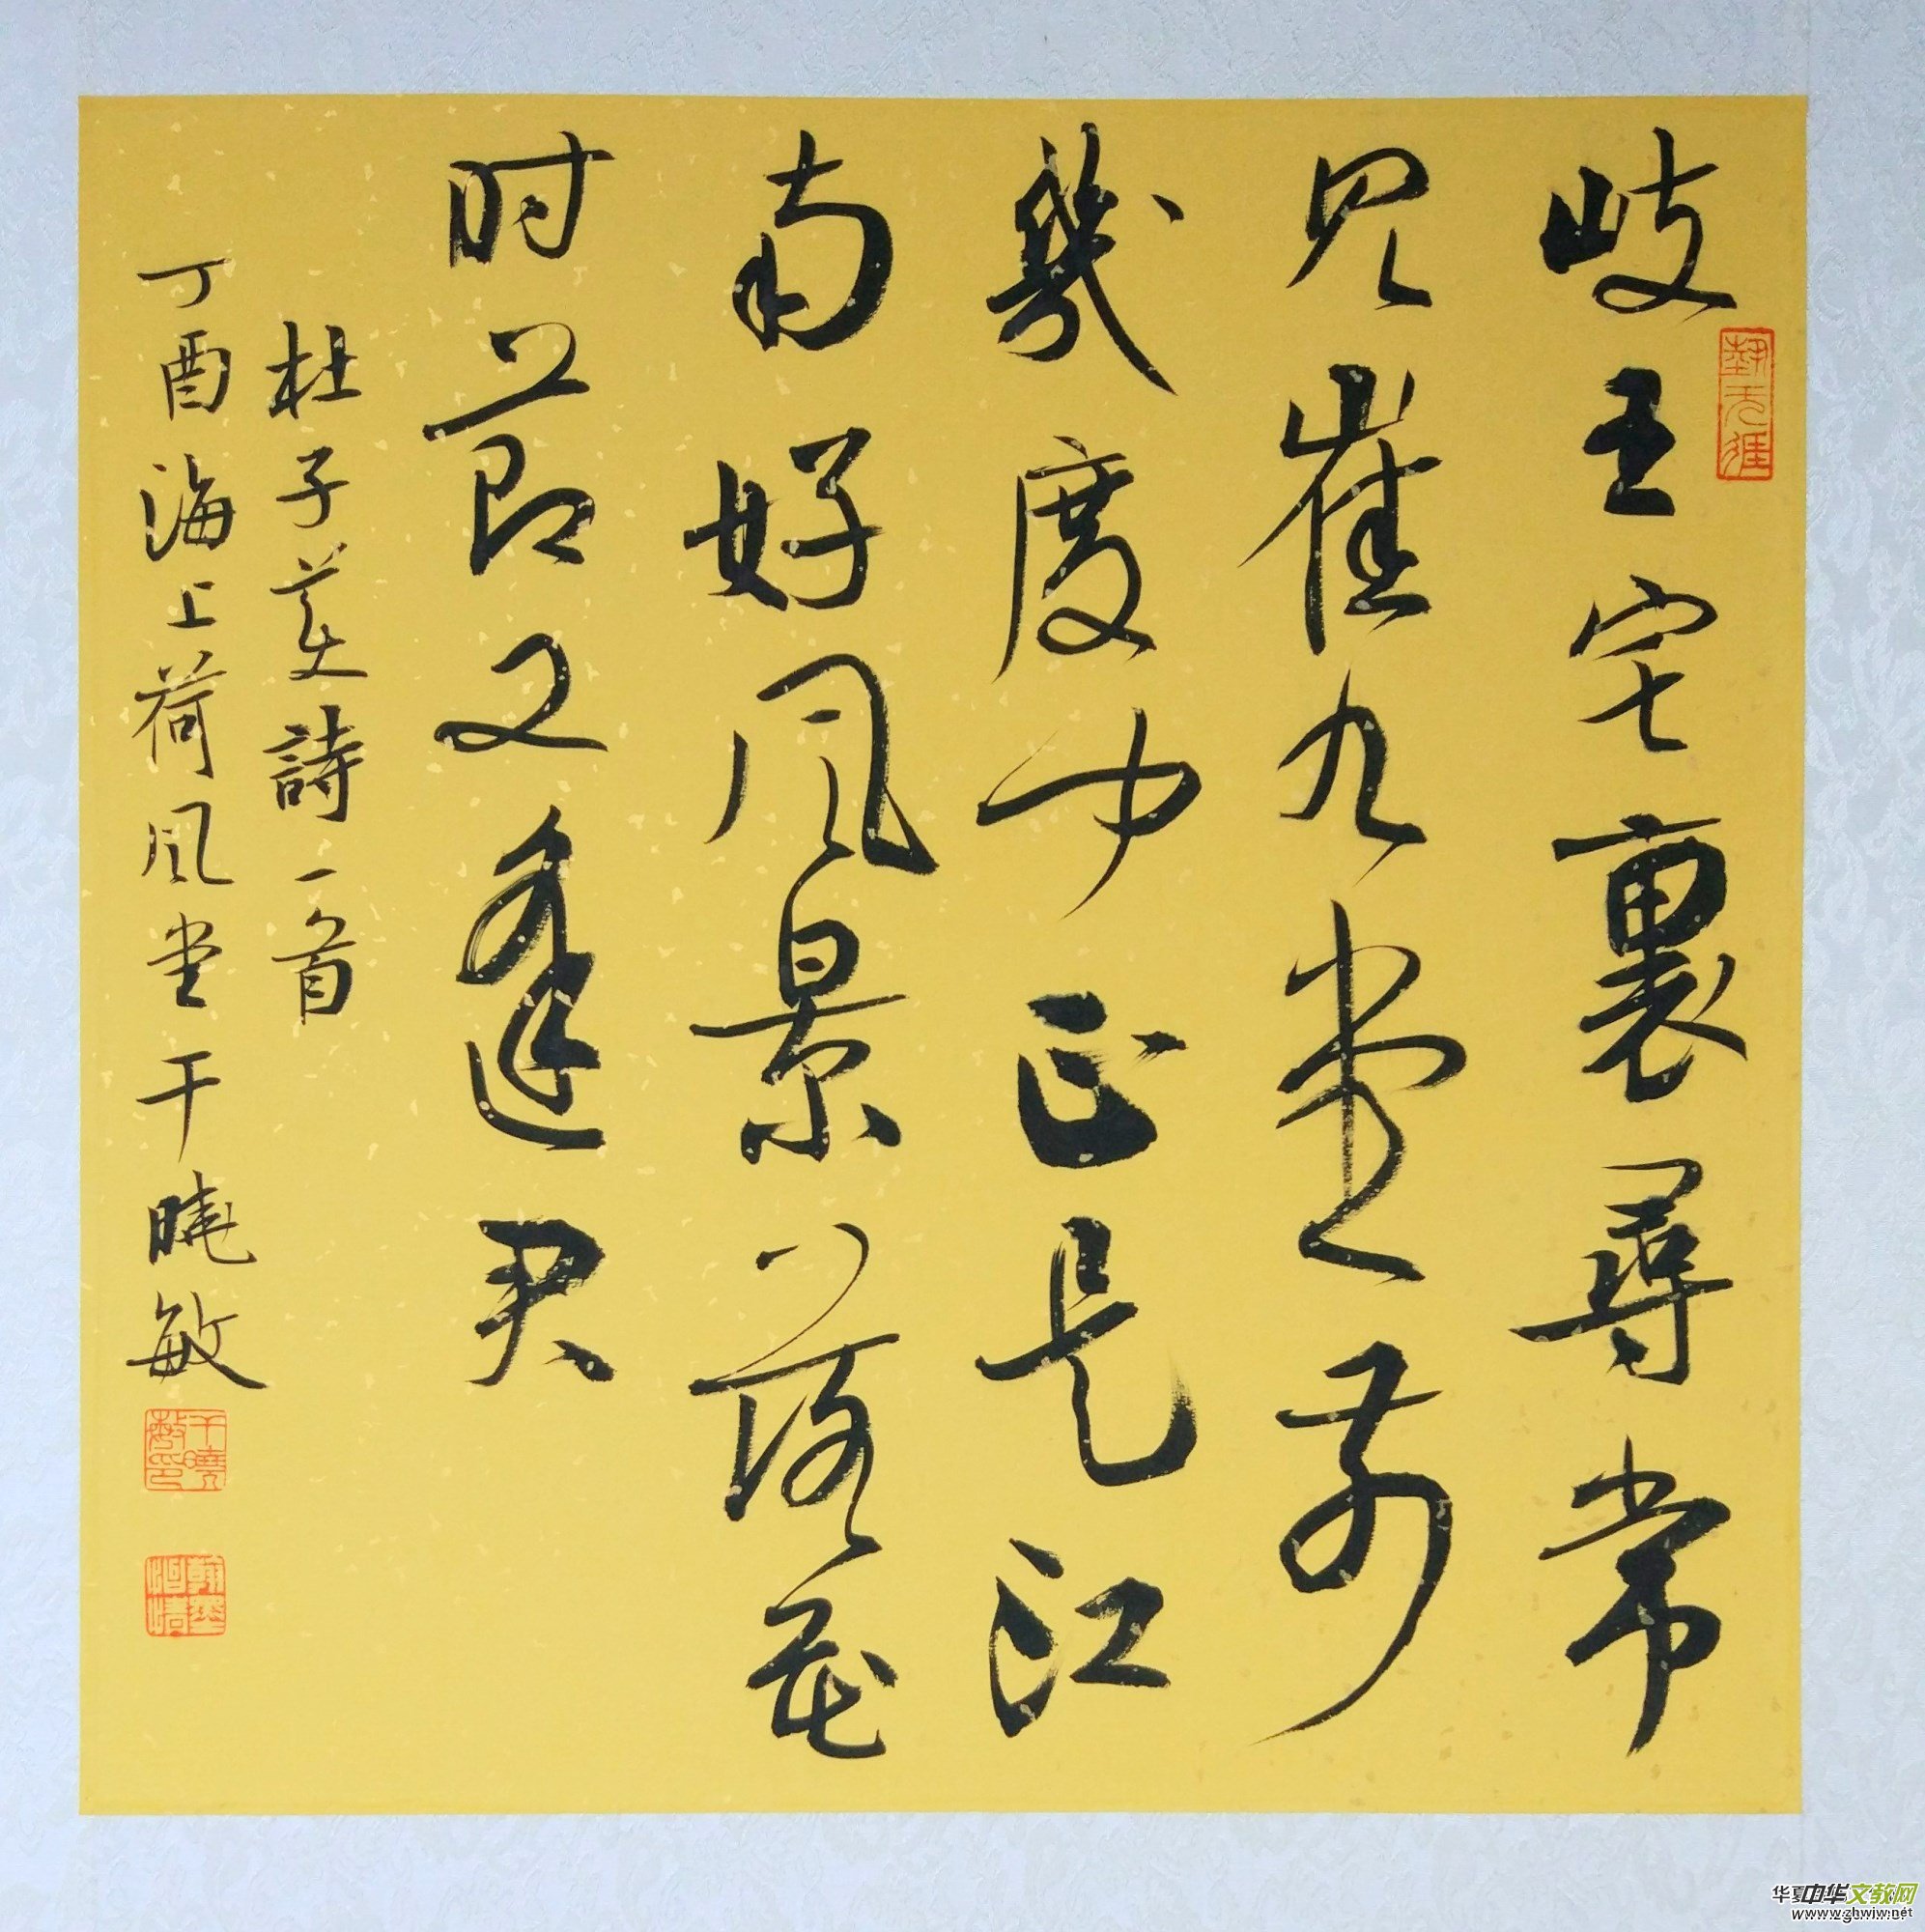 岐王宅裏尋常
見崔九堂前
幾度聞正是江
南好風景落花
时節又逢君
杜子美詩一首
丁酉海上荷风堂干曉敏
干曉敏印
中华文教网
www.zghwjw.net